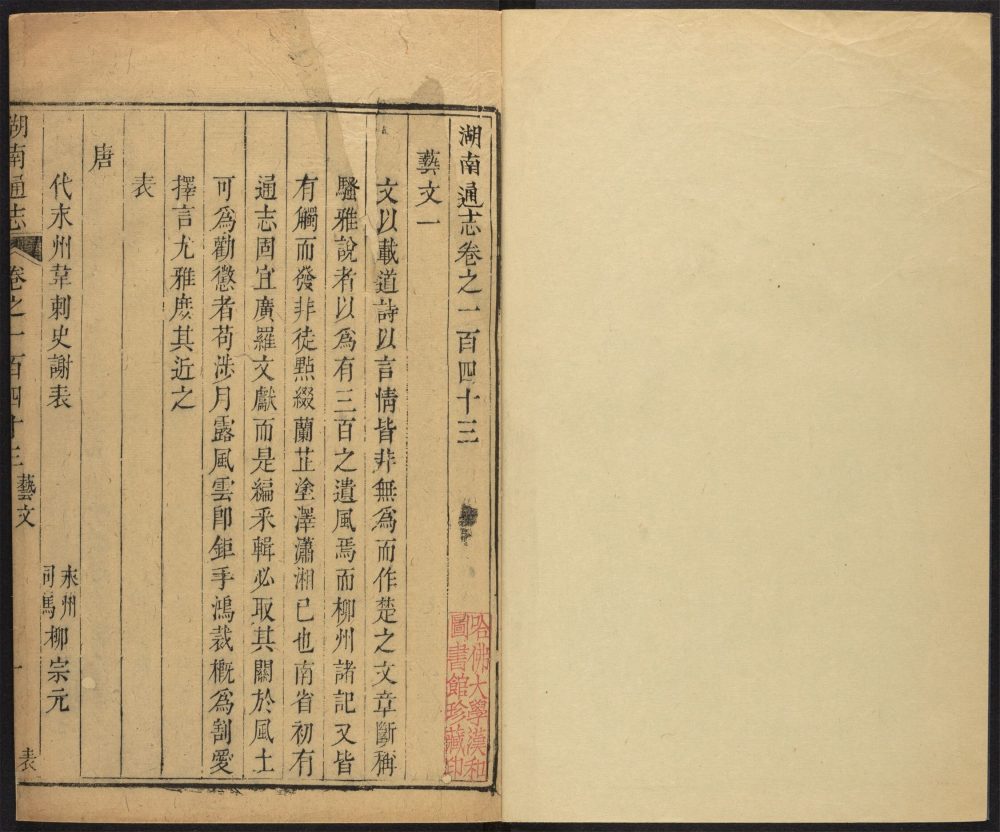 湖南通志卷之一百四十三
藝文一
文以載道詩以言情皆非無爲而作楚之文章斷稱
騷雅說者以爲有三百之遺風焉而柳州諸記又皆
有觸而發非徒點綴蘭芷塗澤瀟湘已也南省初有
通志固宜廣羅文獻而是編采輯必取其關於風土
可爲勸懲者苟涉月露風雲卽鉅手鴻裁槪爲割愛
擇言尤雅庶其近之
表
唐
代永州韋刺史謝表
永州
司馬
柳宗元
湖南通志
卷之一百四十三
藝文
表
一
哈佛大學漢和
圖書館珍藏印